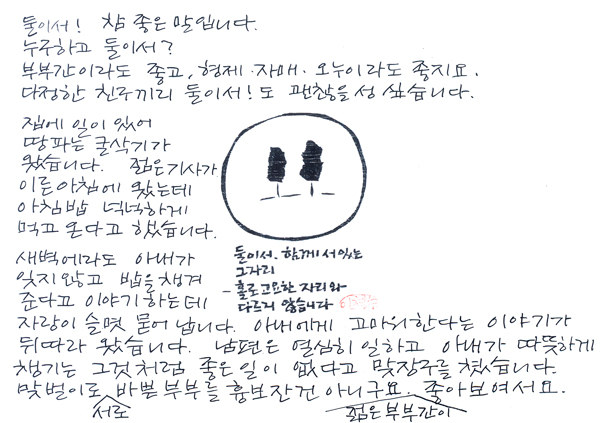 둘이서! 참 좋은 말입니다.
누구하고 둘이서?
부부간이라도 좋고, 형제·자매·오누이라도 좋지요.
다정한 친구끼리 둘이서!도 괜찮을 성 싶습니다.
집에 일이 있어
땅파는 굴삭기가
왔습니다. 젊은기사가
이른아침에 왔는데
아침밥 넉넉하게
먹고 온다고 했습니다.
새벽에라도 아내가
잊지않고 밥을 챙겨
준다고 이야기하는데
둘이서. 함께 서있는
그자리
- 홀로고요한 자리와
다르지 않습니다
자랑이 슬몃 묻어 납니다. 아내에게 고마워한다는 이야기가
뒤따라 왔습니다. 남편은 열심히 일하고 아내가 따뜻하게
챙기는 그것처럼 좋은 일이 없다고 맞장구를 쳤습니다.
맞벌이로 바쁜부부를 흉보잔건 아니구요. 좋아보여서요.
서로
젊은부부간이